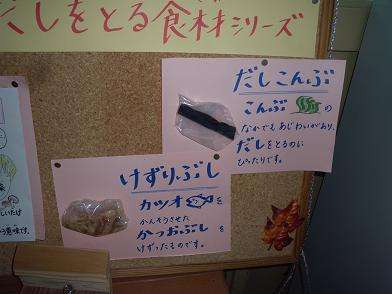 だしをとる食材シリーズ
だしこんぶ
こんぶの
なかでもあじわいがあり、
だしをとるのに
ぴったりです。
けずりぶし
カツオを
かんそうさせた
かつおぶしを
けずったものです。